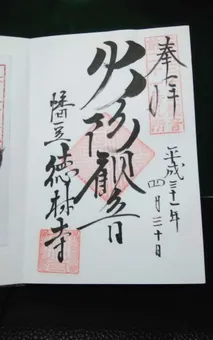 奉拝
平成三十一年
四月三十日
火防観音
幡豆徳林寺